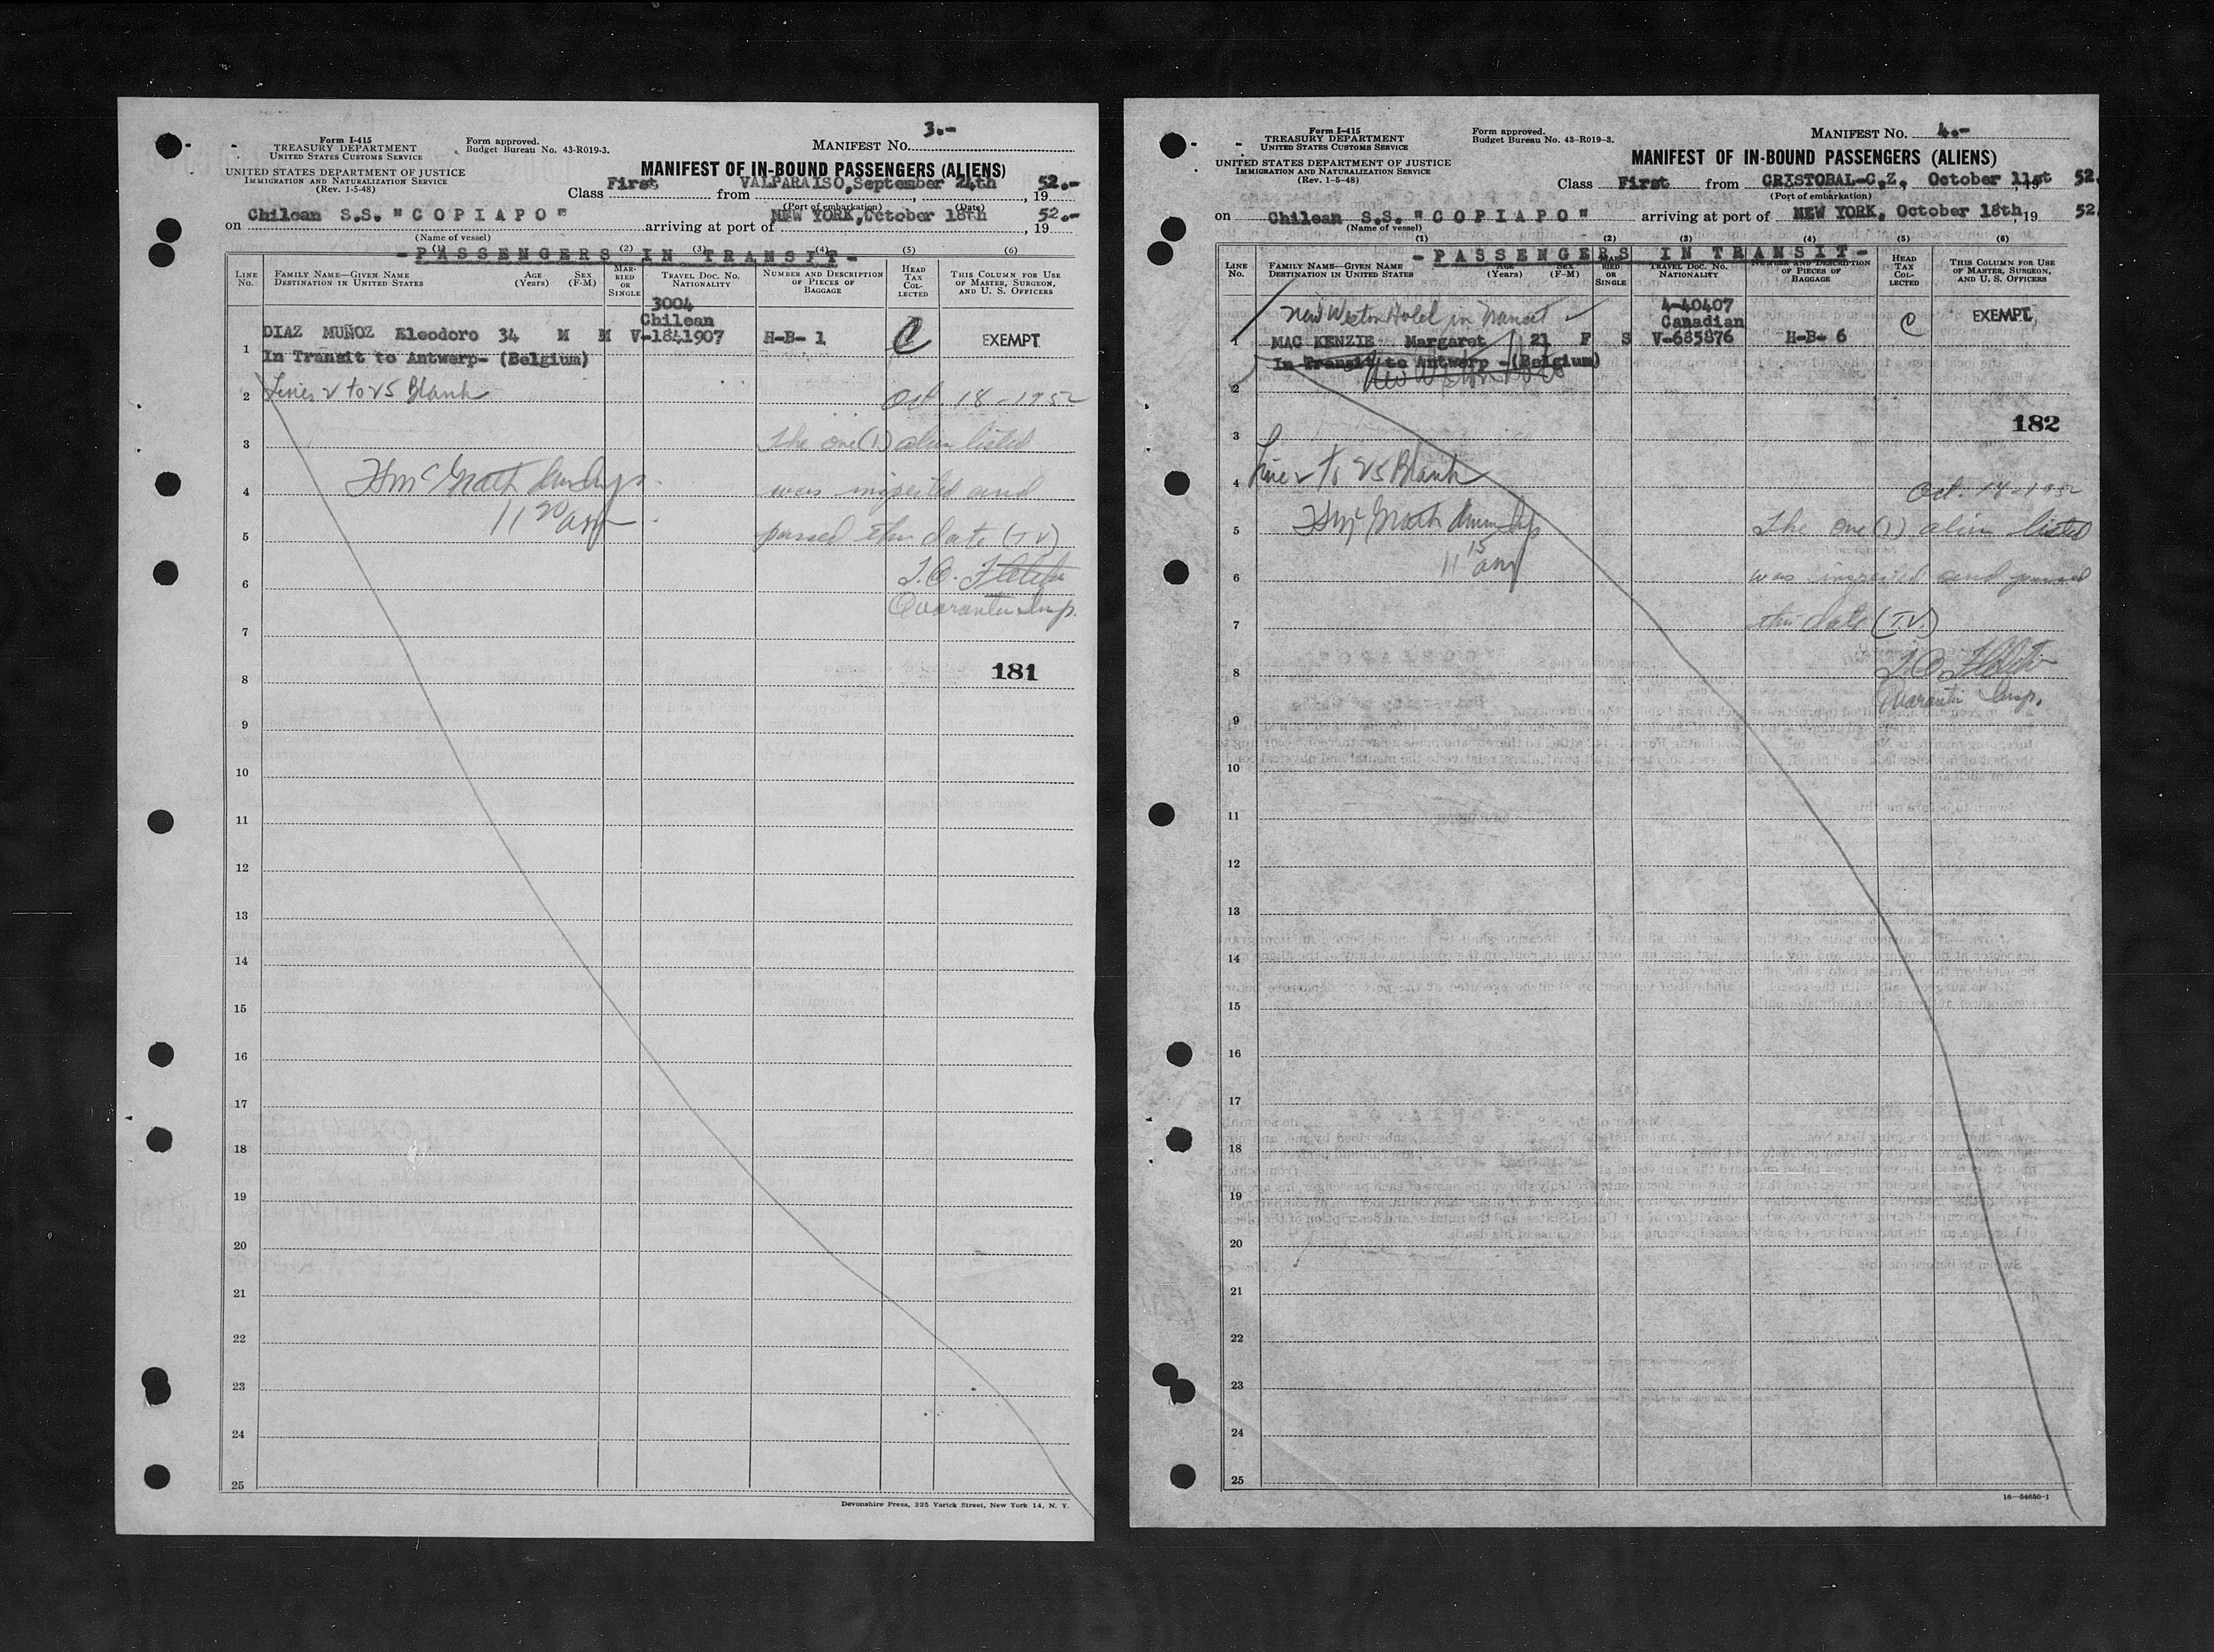 Form I-415
TREASURY DEPARTMENT
UNITED STATES CUSTOMS SERVICE
UNITED STATES DEPARTMENT OF JUSTICE
IMMIGRATION AND NATURALIZATION SERVICE
(Rev. 1-5-48)
Form approved.
Budget Bureau No. 43-R019-3.
3.-
MANIFEST NO.
MANIFEST OF IN-BOUND PASSENGERS (ALIENS)
Class First from VALPARAISO, September 24th, 19 52.-
(Port of embarkation) (Date)
on Chilean S.S. "COPIAPO" arriving at port of NEW YORK, October 18th, 19 52.-
(Name of vessel)
-PASSENGERS IN TRANSIT-
(1) (2) (3) (4) (5) (6)
LINE NO. FAMILY NAME—GIVEN NAME DESTINATION IN UNITED STATES AGE (Years) SEX (F-M) MARRIED OR SINGLE TRAVEL DOC. NO. NATIONALITY NUMBER AND DESCRIPTION OF PIECES OF BAGGAGE HEAD TAX COLLECTED THIS COLUMN FOR USE OF MASTER, SURGEON, AND U. S. OFFICERS
3004
Chilean
1 DIAZ MUÑOZ Eleodoro 34 M M V-1841907 H-B- 1 EXEMPT
In Transit to Antwerp- (Belgium)
2 Lines 2 to 25 Blank Oct 18-1952
3 The one (1) alien listed
4 was inspected and
11 20 am
5 passed this date (T.V)
6
Quarantine Insp.
7
181
8
9
10
11
12
13
14
15
16
17
18
19
20
21
22
23
24
25
Devonshire Press, 225 Varick Street, New York 14, N. Y.
Form I-415
TREASURY DEPARTMENT
UNITED STATES CUSTOMS SERVICE
UNITED STATES DEPARTMENT OF JUSTICE
IMMIGRATION AND NATURALIZATION SERVICE
(Rev. 1-5-48)
Form approved.
Budget Bureau No. 43-R019-3.
MANIFEST NO. 4.-
MANIFEST OF IN-BOUND PASSENGERS (ALIENS)
Class First from CRISTOBAL-C.Z, October 11st 19 52
(Port of embarkation)
on Chilean S.S. "COPIAPO" arriving at port of NEW YORK, October 18th, 19 52
(Name of vessel)
(1) (2) (3) (4) (5) (6)
-PASSENGERS IN TRANSIT-
LINE NO. FAMILY NAME—GIVEN NAME DESTINATION IN UNITED STATES AGE (Years) SEX (F-M) MARRIED OR SINGLE TRAVEL DOC. NO. NATIONALITY NUMBER AND DESCRIPTION OF PIECES OF BAGGAGE HEAD TAX COLLECTED THIS COLUMN FOR USE OF MASTER, SURGEON, AND U. S. OFFICERS
New Weston Hotel in Transit 4-40407
Canadian EXEMPT
1 MAC KENZIE Margaret 21 F S V-685876 H-B- 6
In Transit to Antwerp -(Belgium)
2
182
3
4 Line 2 to 25 Blank Oct. 18-1952
5 The one (1) alien listed
11 15 am
6 was inspected and passed
7 this date (T.V.)
8
Quarantine Insp.
9
10
11
12
13
14
15
16
17
18
19
20
21
22
23
24
25
16-54650-1